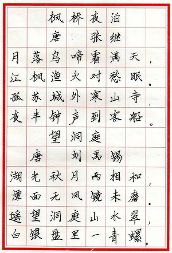 枫桥夜泊
唐 张继
月落乌啼霜满天，
江枫渔火对愁眠。
孤苏城外寒山寺，
夜半钟声到客船。
望洞庭
唐 刘禹锡
湖光秋月两相和，
潭面无风镜未磨。
遥望洞庭山水翠，
白银盘里一青螺。